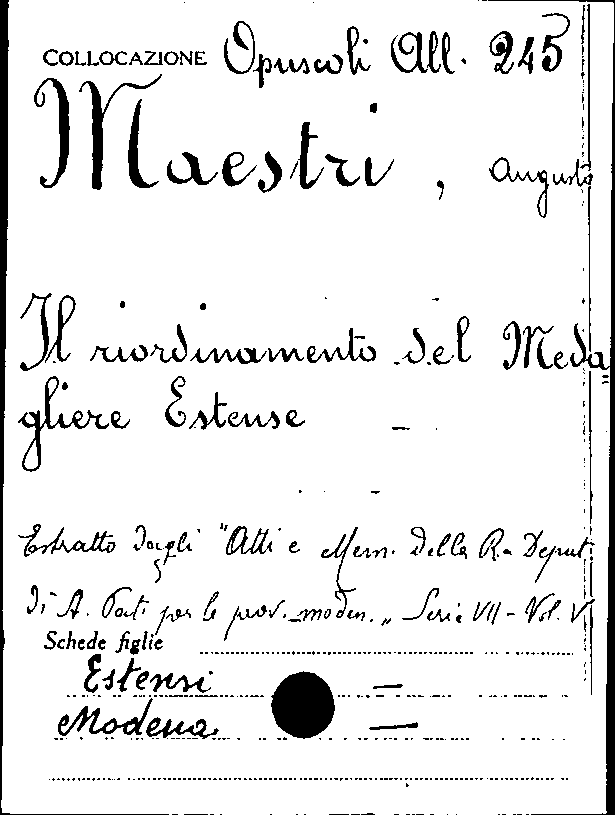 COLLOCAZIONE Opuscoli All. 245
Maestri, Augusto
Il riordinamento del Meda=
gliere Estense -
Estratto dagli "Atti e Mem. della R. Deput.
di S. Patria per le prov. moden." Serie VII - Vol. V
Schede figlie
Estensi -
Modena. -